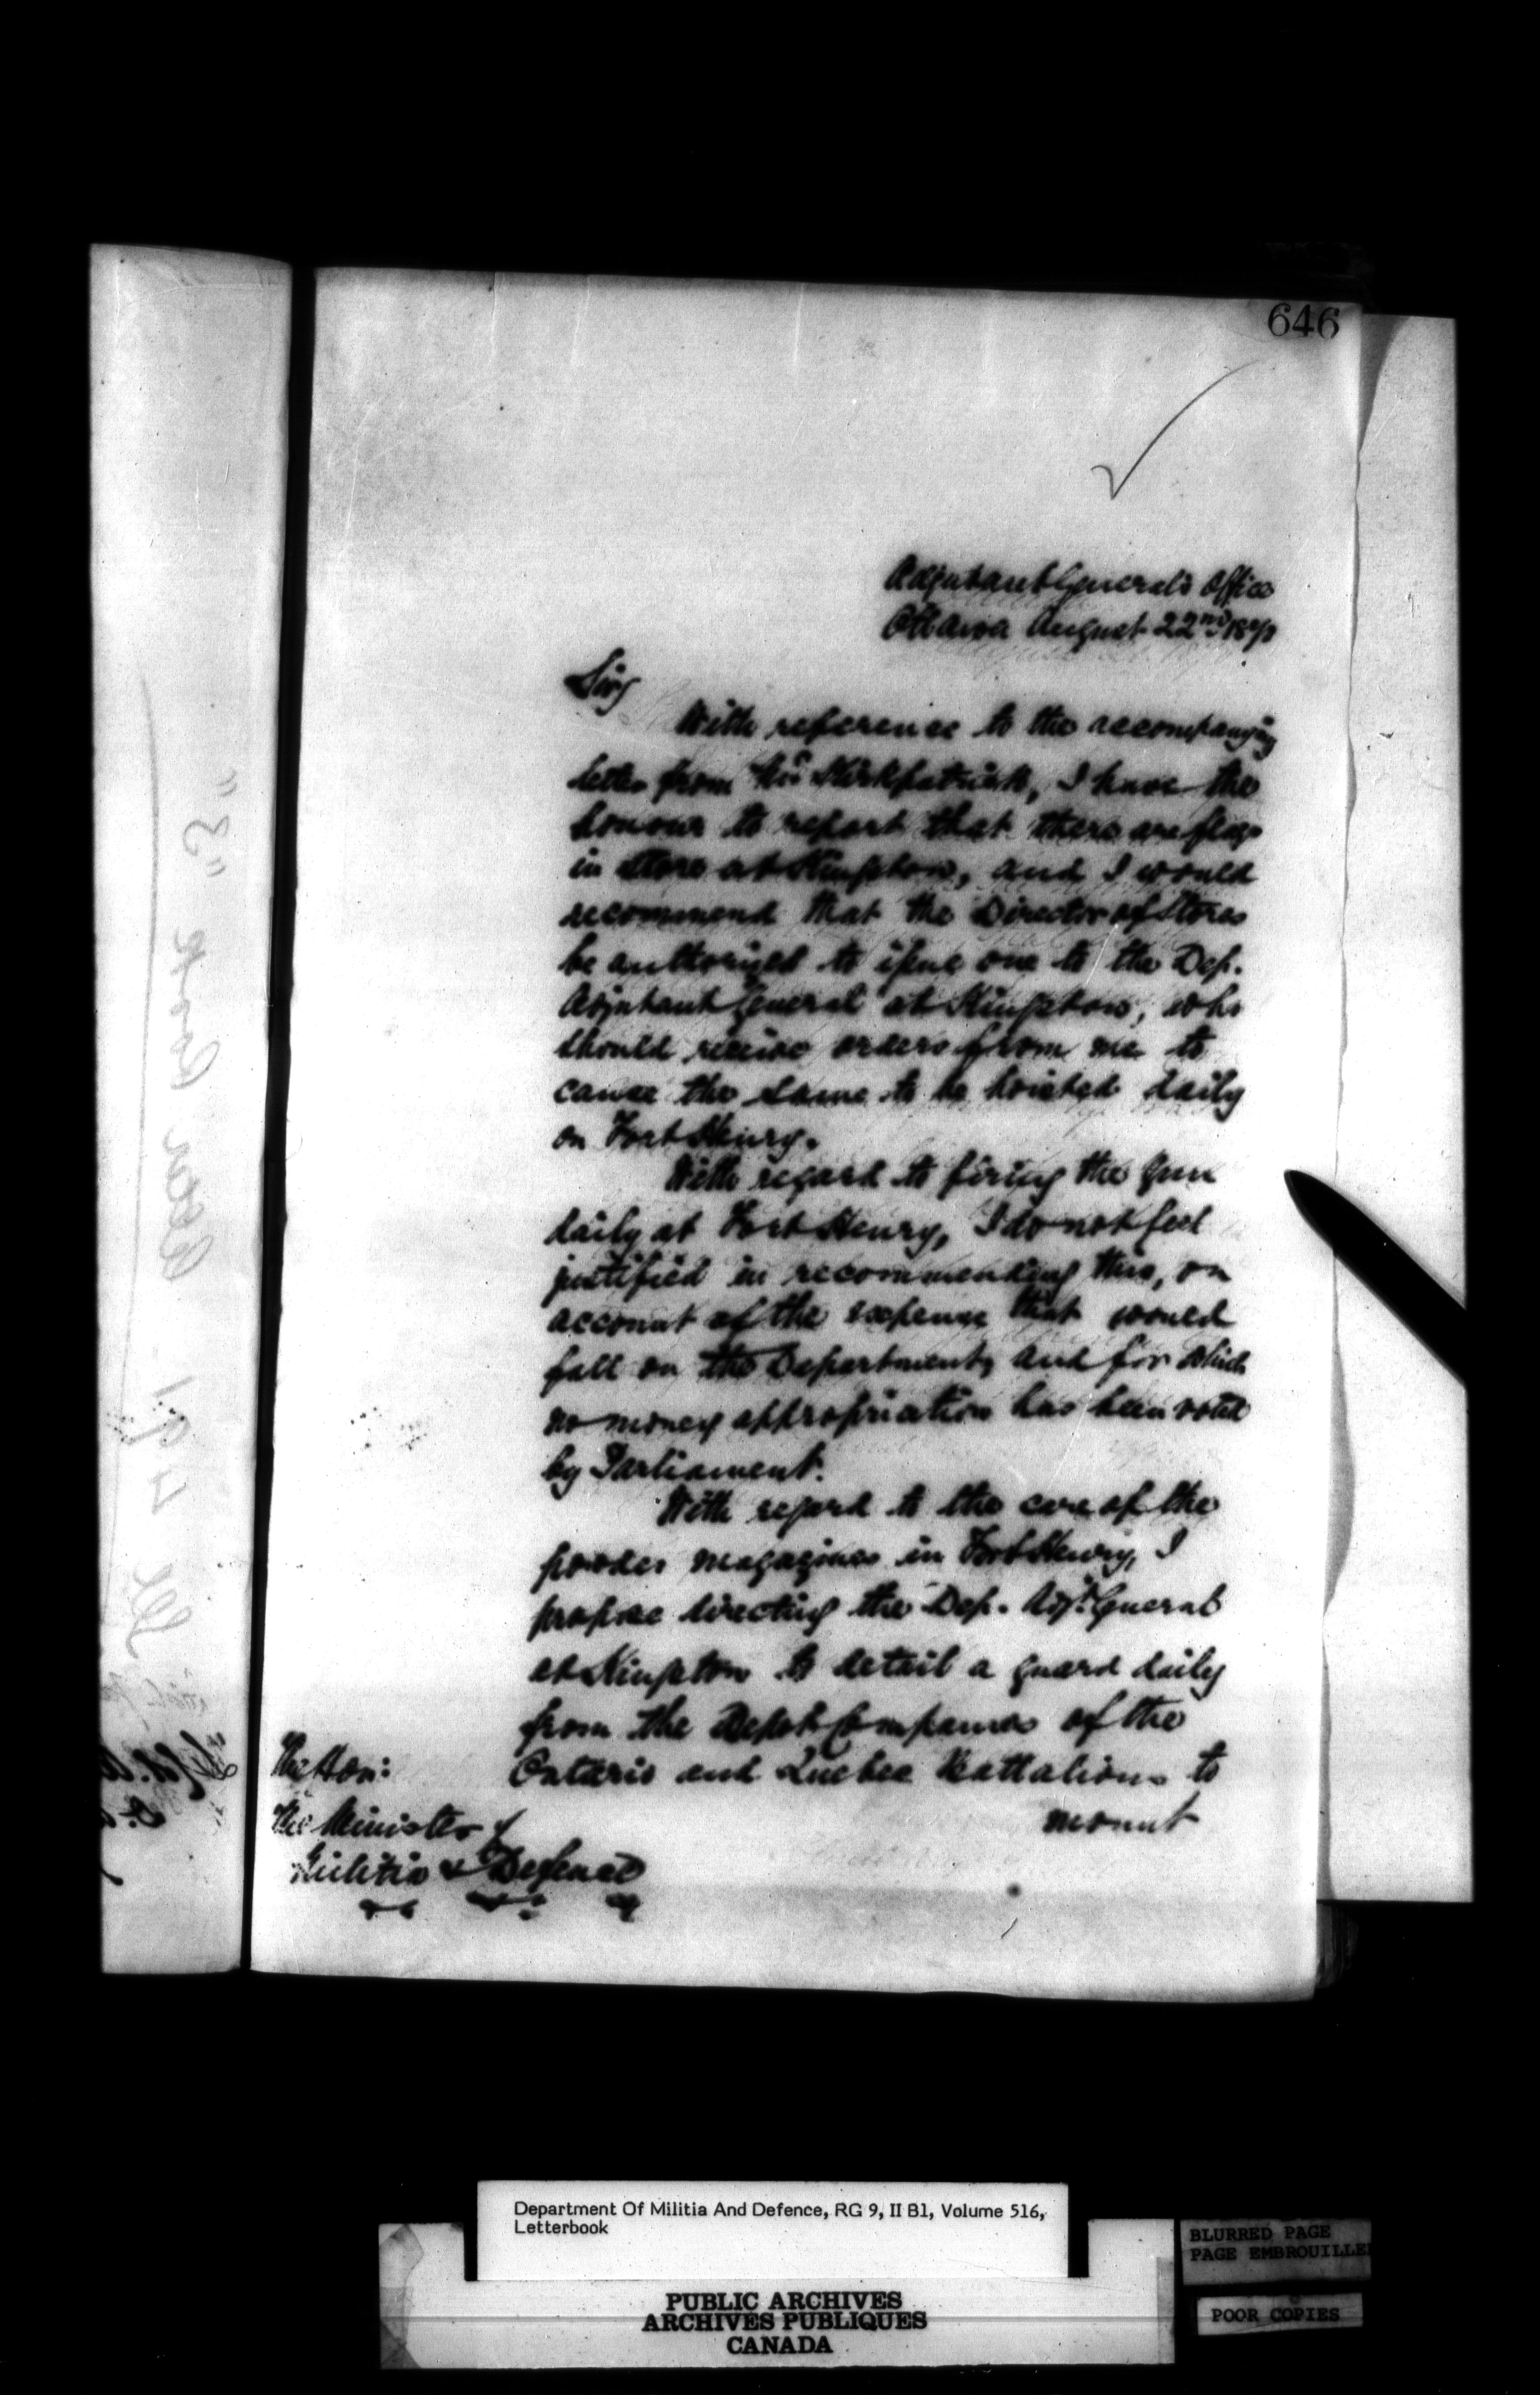 646
Adjutant General's Office
Ottawa August 22nd 187
Sir,
With reference to the accompanying
letter from Kirkpatrick, I have the
honour to report that there are flags
in store at Kingston, and I would
recommend that the Director of Stores
be authorized to issue one to the Dep.
Adjutant General at Kingston, who
should receive orders from me to
cause the same to be hoisted daily
on Fort Henry.
With regard to firing the gun
daily at Fort Henry, I do not feel
justified in recommending this, on
account of the expense that would
fall on the Department, and for which
no money appropriation has been voted
by Parliament.
With regard to the care of the
powder magazines in Fort Henry, I
propose directing the Dep. Adjt. General
at Kingston to detail a guard daily
from the Depot Companies of the
Ontario and Quebec Battalions to
mount
The Hon:
The Minister of
Militia & Defence
Department Of Militia And Defence, RG 9, II B1, Volume 516,
Letterbook
BLURRED PAGE
PAGE EMBROUILLE
POOR COPIES
PUBLIC ARCHIVES
ARCHIVES PUBLIQUES
CANADA